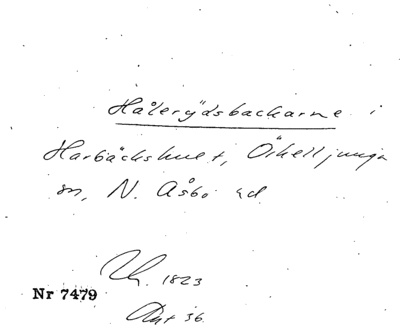 Hålerydsbackarne i
Harbäckshult, Örkelljunga
sn, N. Åsbo hd
1823
Nr 7479
Akt 36.